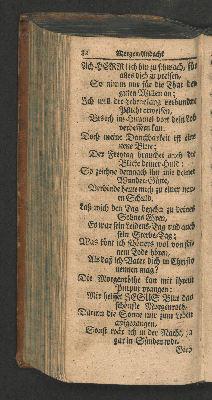 82 Morgen-Andacht
Ach HERR ich bin zu schwach, für
alles dich zu preisen,
So nim in mir für die That den
guten Willen an;
Ich will die Lebenslang verbundne
Pflicht erweisen,
Biß ich im Himmel dort dein Lob
verbessern kan.
Doch meine Danckbarkeit ist eine
Bitte:
Der Freytag brauchet auch die
Blicke deiner Huld:
So zeichne demnach ihn mit deiner
Wunder-Güte,
Verbinde heute mich zu einer neuen
Schuld.
Laß mich den Tag begehn zu deines
Sohnes Ehren,
Es war sein Leidens-Tag und auch
sein Sterbe-Tag;
Was könt ich schöners wol von seinem
Tode hören,
Als daß ich Vater dich in Christo
nennen mag?
Die Morgenröthe kan mit ihrem
Purpur prangen:
Mir bleibet JESUS Blut das
schönste Morgenroth.
Darinn die Sonne mir zum Leben
aufgegangen,
Sonst wär ich in der Nacht, ja
gar in Sünden todt.